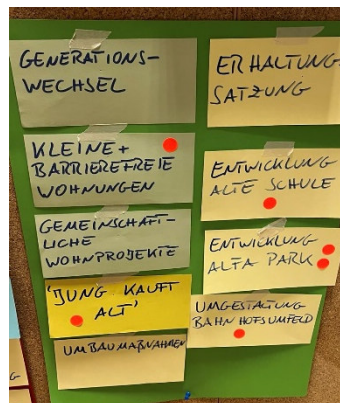 GENERATIONS-
WECHSEL
KLEINE +
BARRIEREFREIE
WOHNUNGEN
GEMEINSCHAFT-
LICHE
WOHNPROJEKTE
'JUNG KAUFT
ALT'
UMBAUMAßNAHMEN
ERHALTUNGS
SATZUNG
ENTWICKLUNG
ALTE SCHULE
ENTWICKLUNG
ALFA PARK
UMGESTALTUNG
BAHNHOFSUMFELD
G